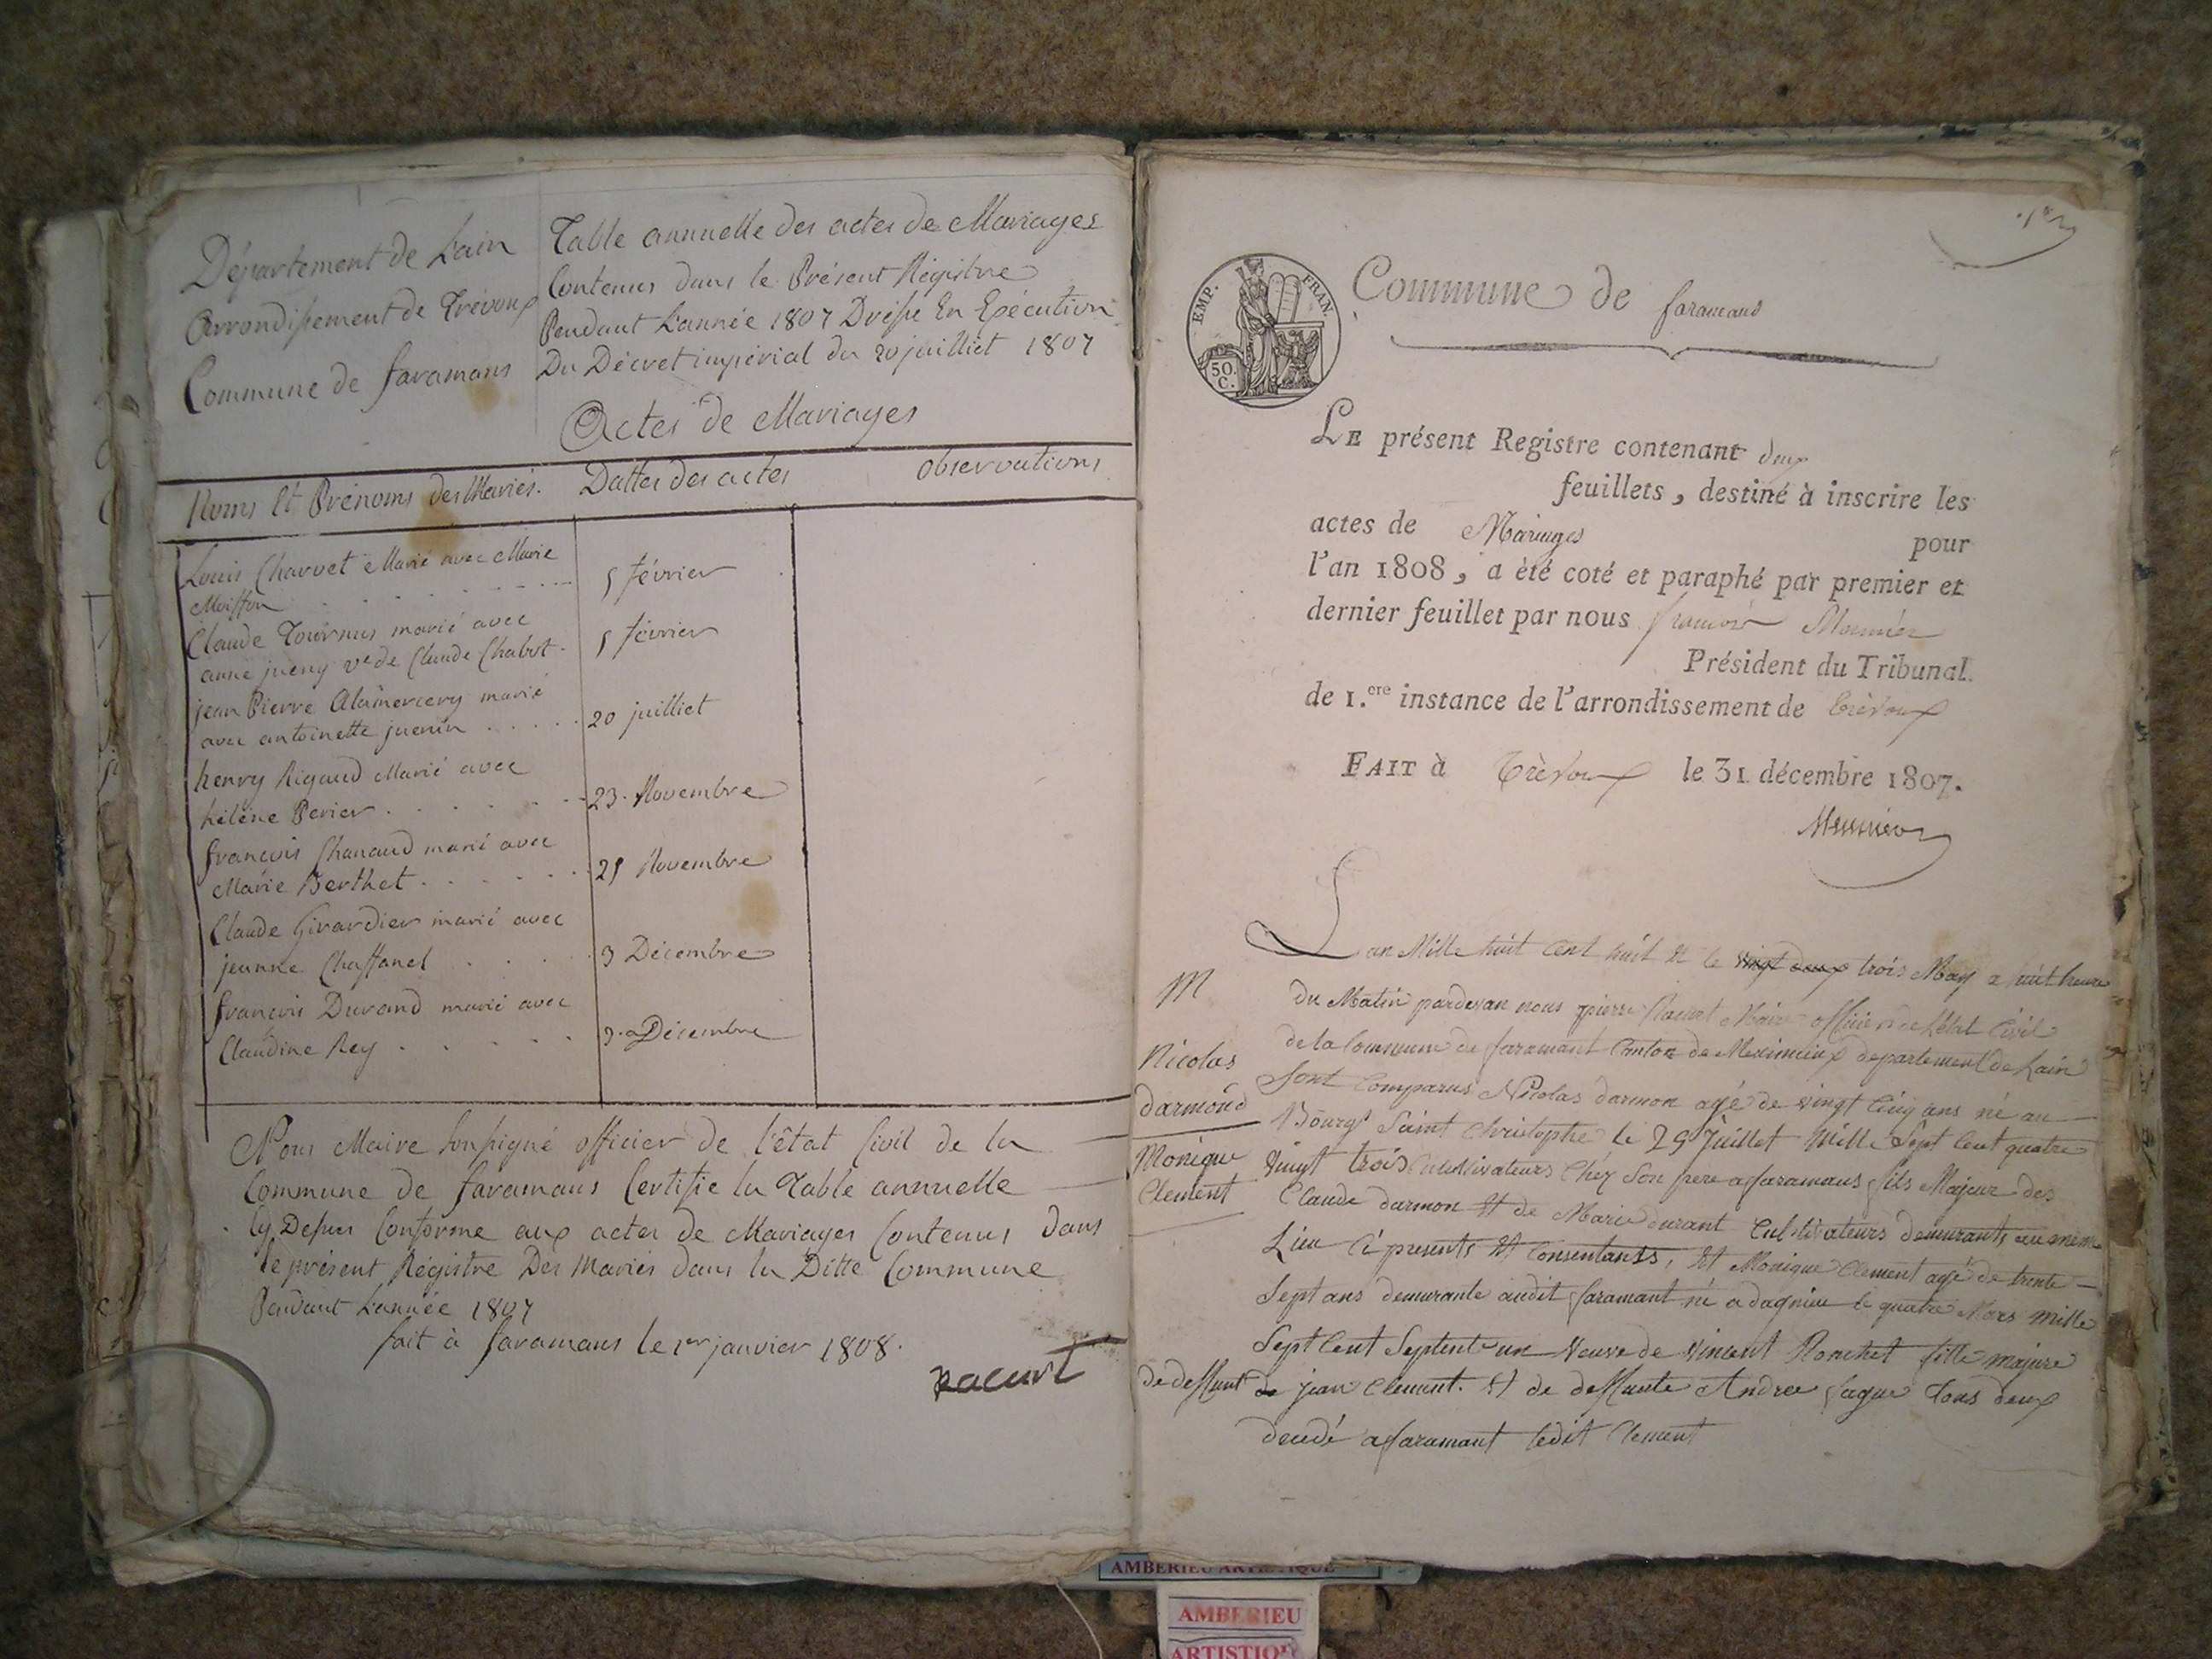 Département de Lain
Arrondissement de Trévoux
Commune de faramans
Table annuelle des actes de Mariages
Contenus dans le Présent Régistre
Pendant L'année 1807 Dressé En Exécution
Du Décret impérial du 20 juilliet 1807
Actes de Mariages
Noms Et Prénoms des Mariés. Dattes des actes observations
Louis Charvet Marié avec Marie
Moiffon 5 février
Claude Tournus marié avec
anne jueny ve de Claude Chabot. 5 février
jean Pierre Alamercery marié
avec antoinette juenin 20 juilliet
henry Rigaud Marié avec
hélène Perier 23. Novembre
françois Chanaud marié avec
Marie Berthet 25 Novembre
Claude Girardier marié avec
jeanne Chaffanel 3 Décembre
françois Durand marié avec
Claudine Rey 9. Décembre
Nous Maire soussigné officier de l'état Civil de la
Commune de faramans Certifie la Table annuelle
Cy Dessus Conforme aux actes de Mariages Contenus dans
le présent Régistre Des Mariés dans la Ditte Commune
Pendant L'année 1807
fait à faramans le 1er janvier 1808.
Racurt
1er
EMP. FRAN.
50.
C.
Commune de faramans
LE présent Registre contenant deux
feuillets, destiné à inscrire les
actes de Mariages pour
l'an 1808, a été coté et paraphé par premier et
dernier feuillet par nous françois Monnier
Président du Tribunal
de 1.ere instance de l'arrondissement de Trévoux
FAIT à Trévoux le 31 décembre 1807.
Monnier
M
Nicolas
darmond
Monique
Clement
Lan Mille huit Cent huit Et le vingt deux trois May a huit heure
du Matin pardevan nous pierre Racurt Maire officier de Létat Civil
de la Commune de faramant Canton de Meximieux departement de Lain
Sont Comparus Nicolas darmon agé de vingt Cinq ans né au
Bourgt Saint Christophe le 29 Juillet Mille Sept Cent quatre
vingt trois Cultivateurs Chez Son pere a faramans fils Majeur des
Claude darmon Et de Marie durant Cultivateurs demurants au mème
Lieu Ci presents Et Consentants, Et Monique Clement agé de trente
Sept ans demurante audit faramant né a dagnieu le quatre Mars mille
Sept Cent Septente un veuve de vincent Ronchet fille majure
de deffunt de jean Clement. Et de deffunte Andrea fague tous deux
decedé a faramant ledit Clement
AMBERIEU ARTISTIQUE
AMBERIEU
ARTISTIQUE